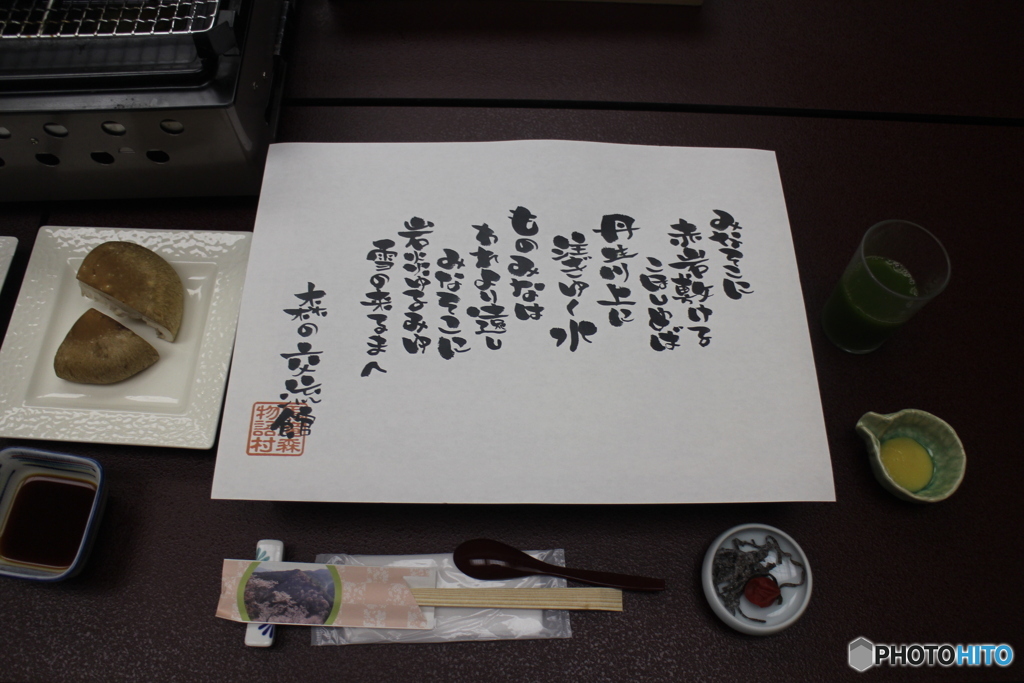 みなそこに
赤岩敷ける
こほしめば
丹生川上に
注ぎゆく水
ものみなは
われより遠し
みなそこに
岩炎ゆるみゆ
雪の来るまへ
森の交流館
物語村
PHOTOHITO